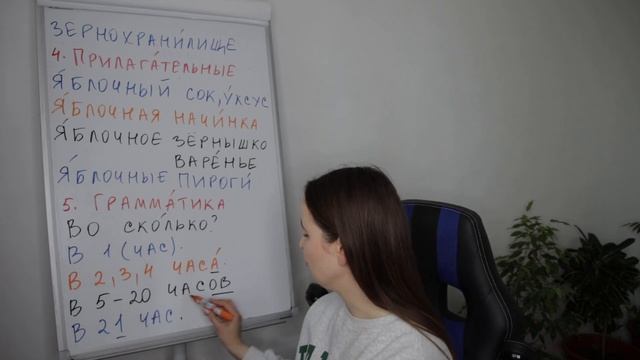 ЗЕРНОХРАНИ́ЛИЩЕ
4. ПРИЛАГА́ТЕЛЬНЫЕ
Я́БЛОЧНЫЙ СОК, У́КСУС
Я́БЛОЧНАЯ НАЧИ́НКА
Я́БЛОЧНОЕ ЗЁРНЫШКО
ВАРЕ́НЬЕ
Я́БЛОЧНЫЕ ПИРОГИ́
5. ГРАММА́ТИКА
ВО СКО́ЛЬКО?
В 1 (ЧАС).
В 2, 3, 4 ЧАСА́.
В 5-20 ЧАСОВ
В 21 ЧАС.